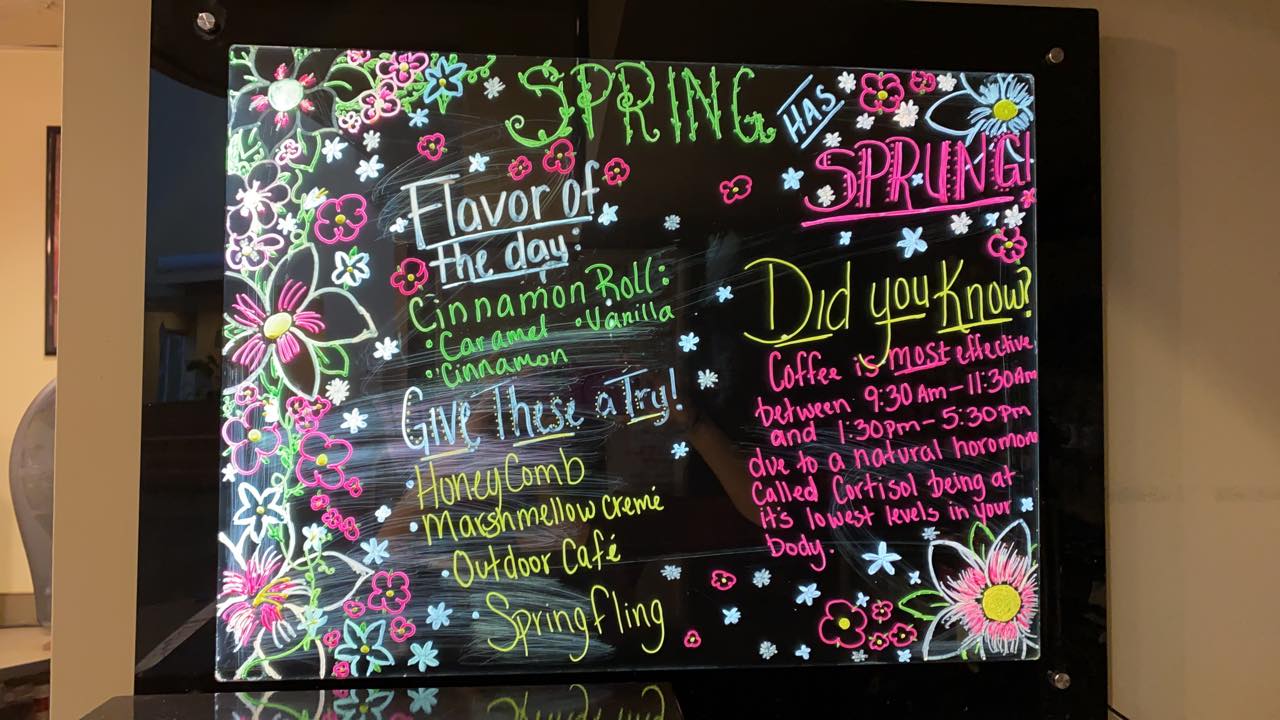 SPRING HAS
SPRUNG!
Flavor of
the day:
Cinnamon Roll:
• Caramel • Vanilla
• Cinnamon
Give These a Try!
• HoneyComb
• Marshmellow Cremé
• Outdoor Café
• Spring fling
Did you Know?
Coffee is most effective
between 9:30 Am - 11:30 Am
and 1:30pm - 5:30pm
due to a natural horomon
Called Cortisol being at
it's lowest levels in your
body.